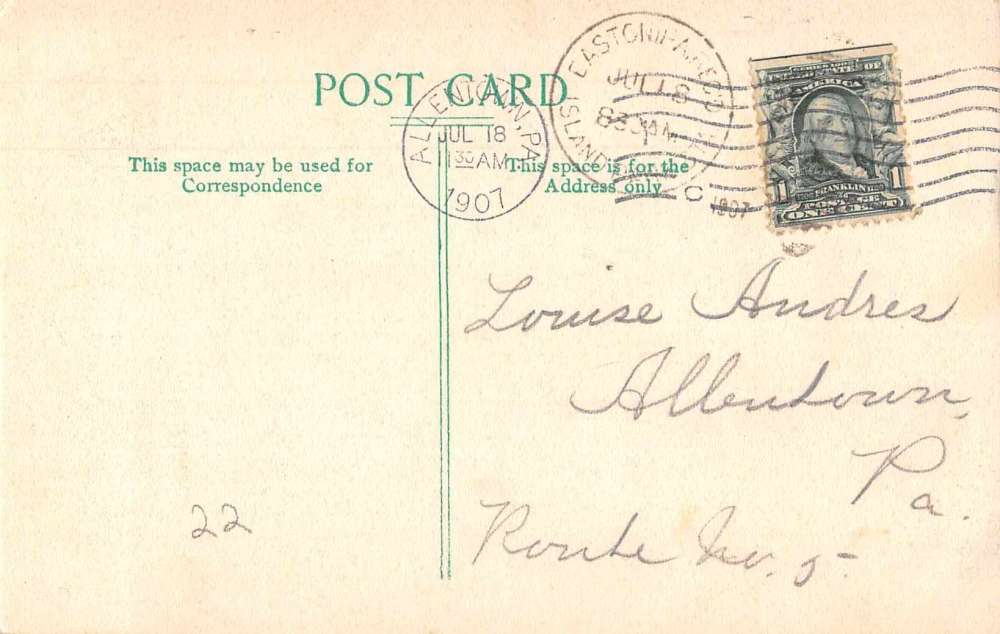 POST CARD
This space may be used for
Correspondence
This space is for the
Address only
ALLENTOWN, PA.
JUL 18
1 30 AM
1907
EASTON, PA.
JUL 18
8 30 AM
ISLAND
1907
UNITED STATES OF
AMERICA
FRANKLIN
1 POSTAGE 1
ONE CENT
Louise Andres
Allentown,
Pa.
Route No. 5-
22